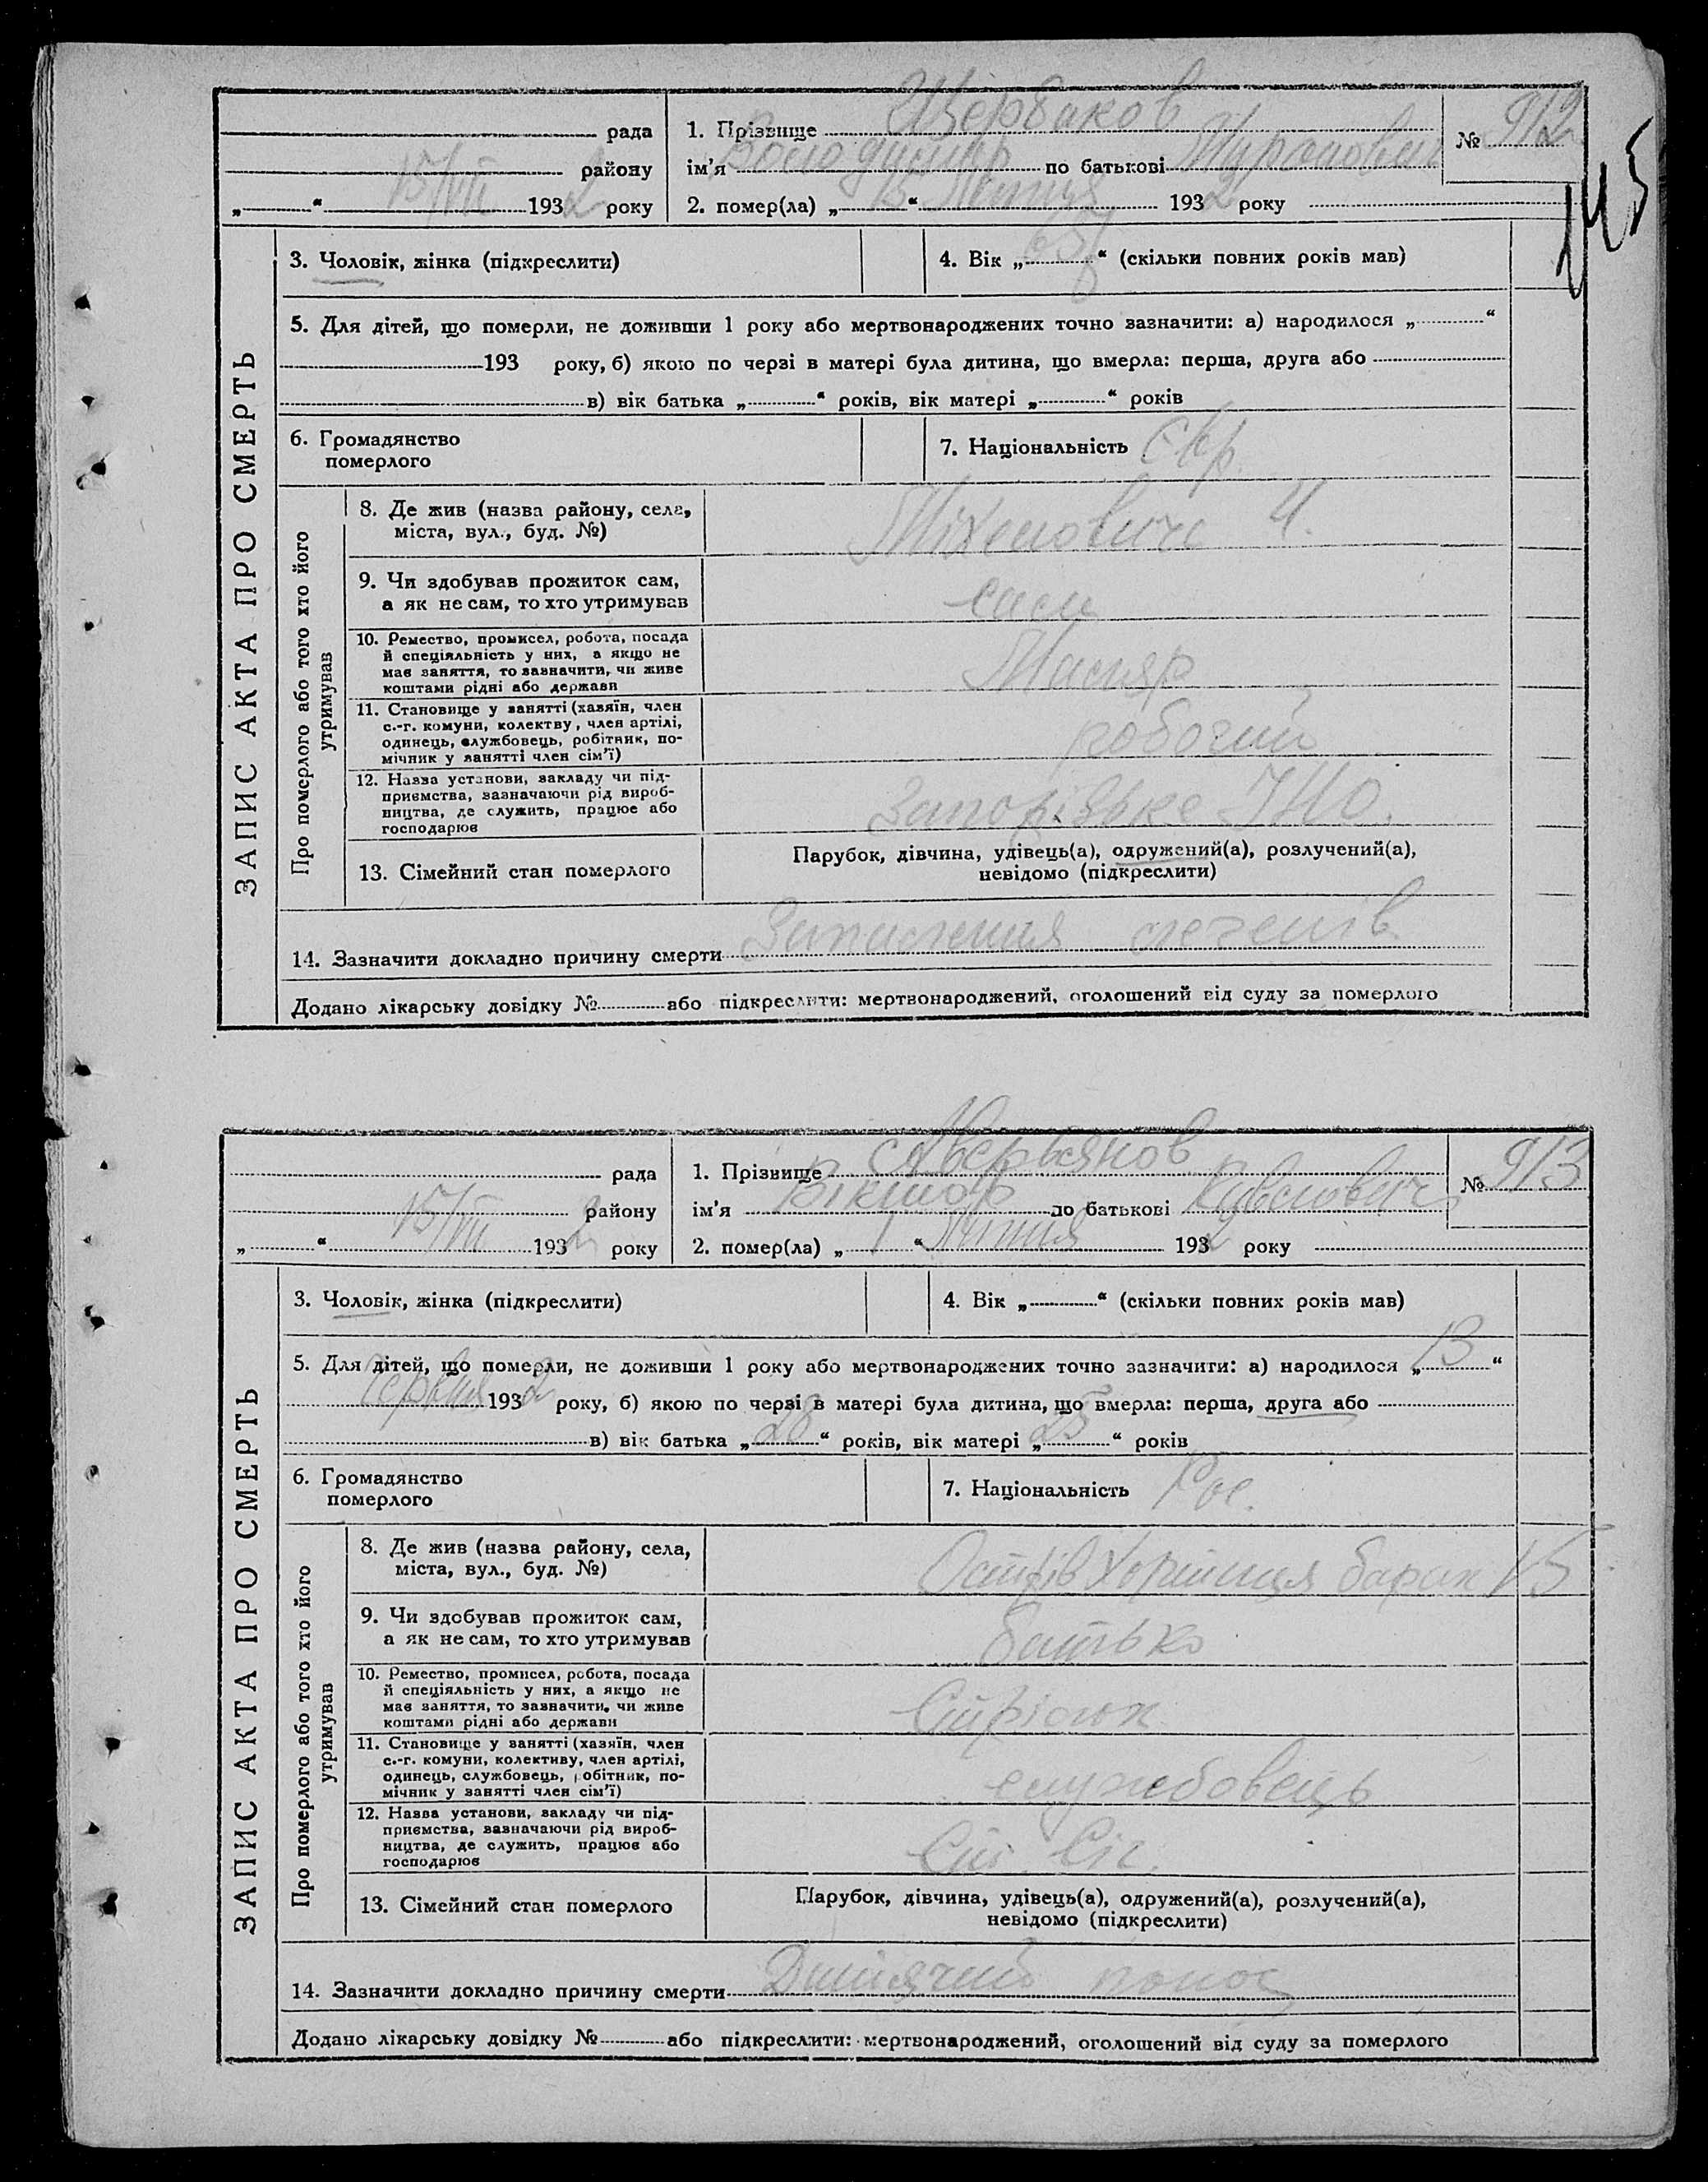 рада
району
15/VIII
„ “ 1932 року
1. Прізвище Щербаков
ім'я Володимир по батькові
2. помер(ла) „ 15 “ Літня 1932 року
№ 912
145
ЗАПИС АКТА ПРО СМЕРТЬ
3. Чоловік, жінка (підкреслити)
4. Вік „ 65 “ (скільки повних років мав)
5. Для дітей, що померли, не доживши 1 року або мертвонароджених точно зазначити: а) народилося „ “
193 року, б) якою по черзі в матері була дитина, що вмерла: перша, друга або
в) вік батька „ “ років, вік матері „ “ років
6. Громадянство
померлого
7. Національність Євр.
Про померлого або того хто його
утримував
8. Де жив (назва району, села,
міста, вул., буд. №)
4.
9. Чи здобував прожиток сам,
а як не сам, то хто утримував
сам
10. Ремество, промисел, робота, посада
й спеціяльність у них, а якщо не
має заняття, то зазначити, чи живе
коштами рідні або держави
Маляр
11. Становище у занятті (хазяїн, член
с.-г. комуни, колектву, член артілі,
одинець, службовець, робітник, по-
мічник у занятті член сім'ї)
робочий
12. Назва установи, закладу чи під-
приємства, зазначаючи рід вироб-
ництва, де служить, працює або
господарює
Запорізьке
13. Сімейний стан померлого
Парубок, дівчина, удівець(а), одружений(а), розлучений(а),
невідомо (підкреслити)
14. Зазначити докладно причину смерти Запалення легенів
Додано лікарську довідку № або підкреслити: мертвонароджений, оголошений від суду за померлого
рада
району
15/VIII
„ “ 1932 року
1. Прізвище Аверьянов
ім'я Віктор по батькові
2. помер(ла) „ 1 “ Літня 1932 року
№ 913
ЗАПИС АКТА ПРО СМЕРТЬ
3. Чоловік, жінка (підкреслити)
4. Вік „ “ (скільки повних років мав)
5. Для дітей, що померли, не доживши 1 року або мертвонароджених точно зазначити: а) народилося „ 13 “
Червня 1932 року, б) якою по черзі в матері була дитина, що вмерла: перша, друга або
в) вік батька „ 28 “ років, вік матері „ 25 “ років
6. Громадянство
померлого
7. Національність Рос.
Про померлого або того хто його
утримував
8. Де жив (назва району, села,
міста, вул., буд. №)
Острів Хортиця барак 15
9. Чи здобував прожиток сам,
а як не сам, то хто утримував
батько
10. Ремество, промисел, робота, посада
й спеціяльність у них, а якщо не
має заняття, то зазначити, чи живе
коштами рідні або держави
Стрілок
11. Становище у занятті (хазяїн, член
с.-г. комуни, колективу, член артілі,
одинець, службовець, робітник, по-
мічник у занятті член сім'ї)
службовець
12. Назва установи, закладу чи під-
приємства, зазначаючи рід вироб-
ництва, де служить, працює або
господарює
13. Сімейний стан померлого
Парубок, дівчина, удівець(а), одружений(а), розлучений(а),
невідомо (підкреслити)
14. Зазначити докладно причину смерти Дитячий понос
Додано лікарську довідку № або підкреслити: мертвонароджений, оголошений від суду за померлого